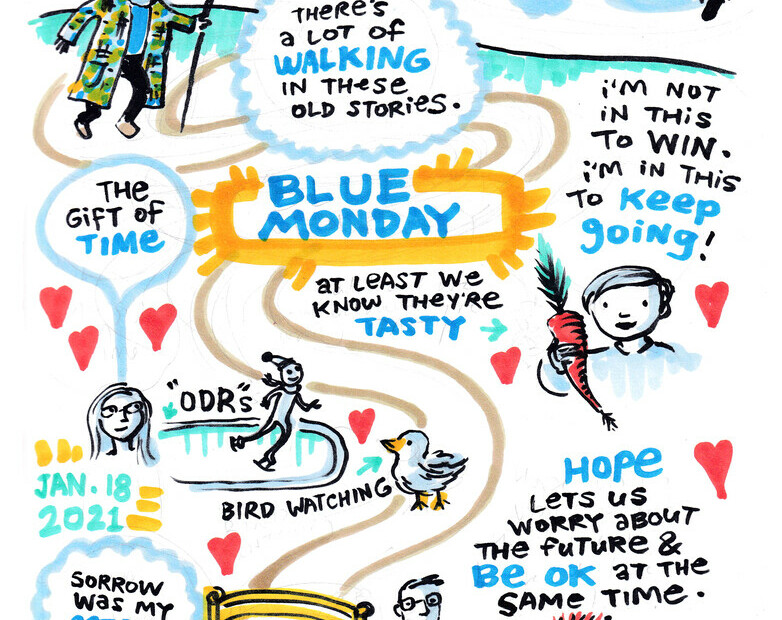 THERE'S
a LOT OF
WALKING
IN THESE
OLD STORIES.
i'M NOT
IN THIS
TO WIN.
i'M IN THIS
TO Keep
going!
THE
GIFT OF
TIME
BLUE
MONDAY
aT LEAST WE
KNOW THEY'RE
TASTY
"ODR's"
JAN. 18
2021
BIRD WATCHING
HOPE
LETS US
WORRY aBOUT
THE FUTURE &
Be OK aT THE
SAME TIME.
SORROW
Was MY